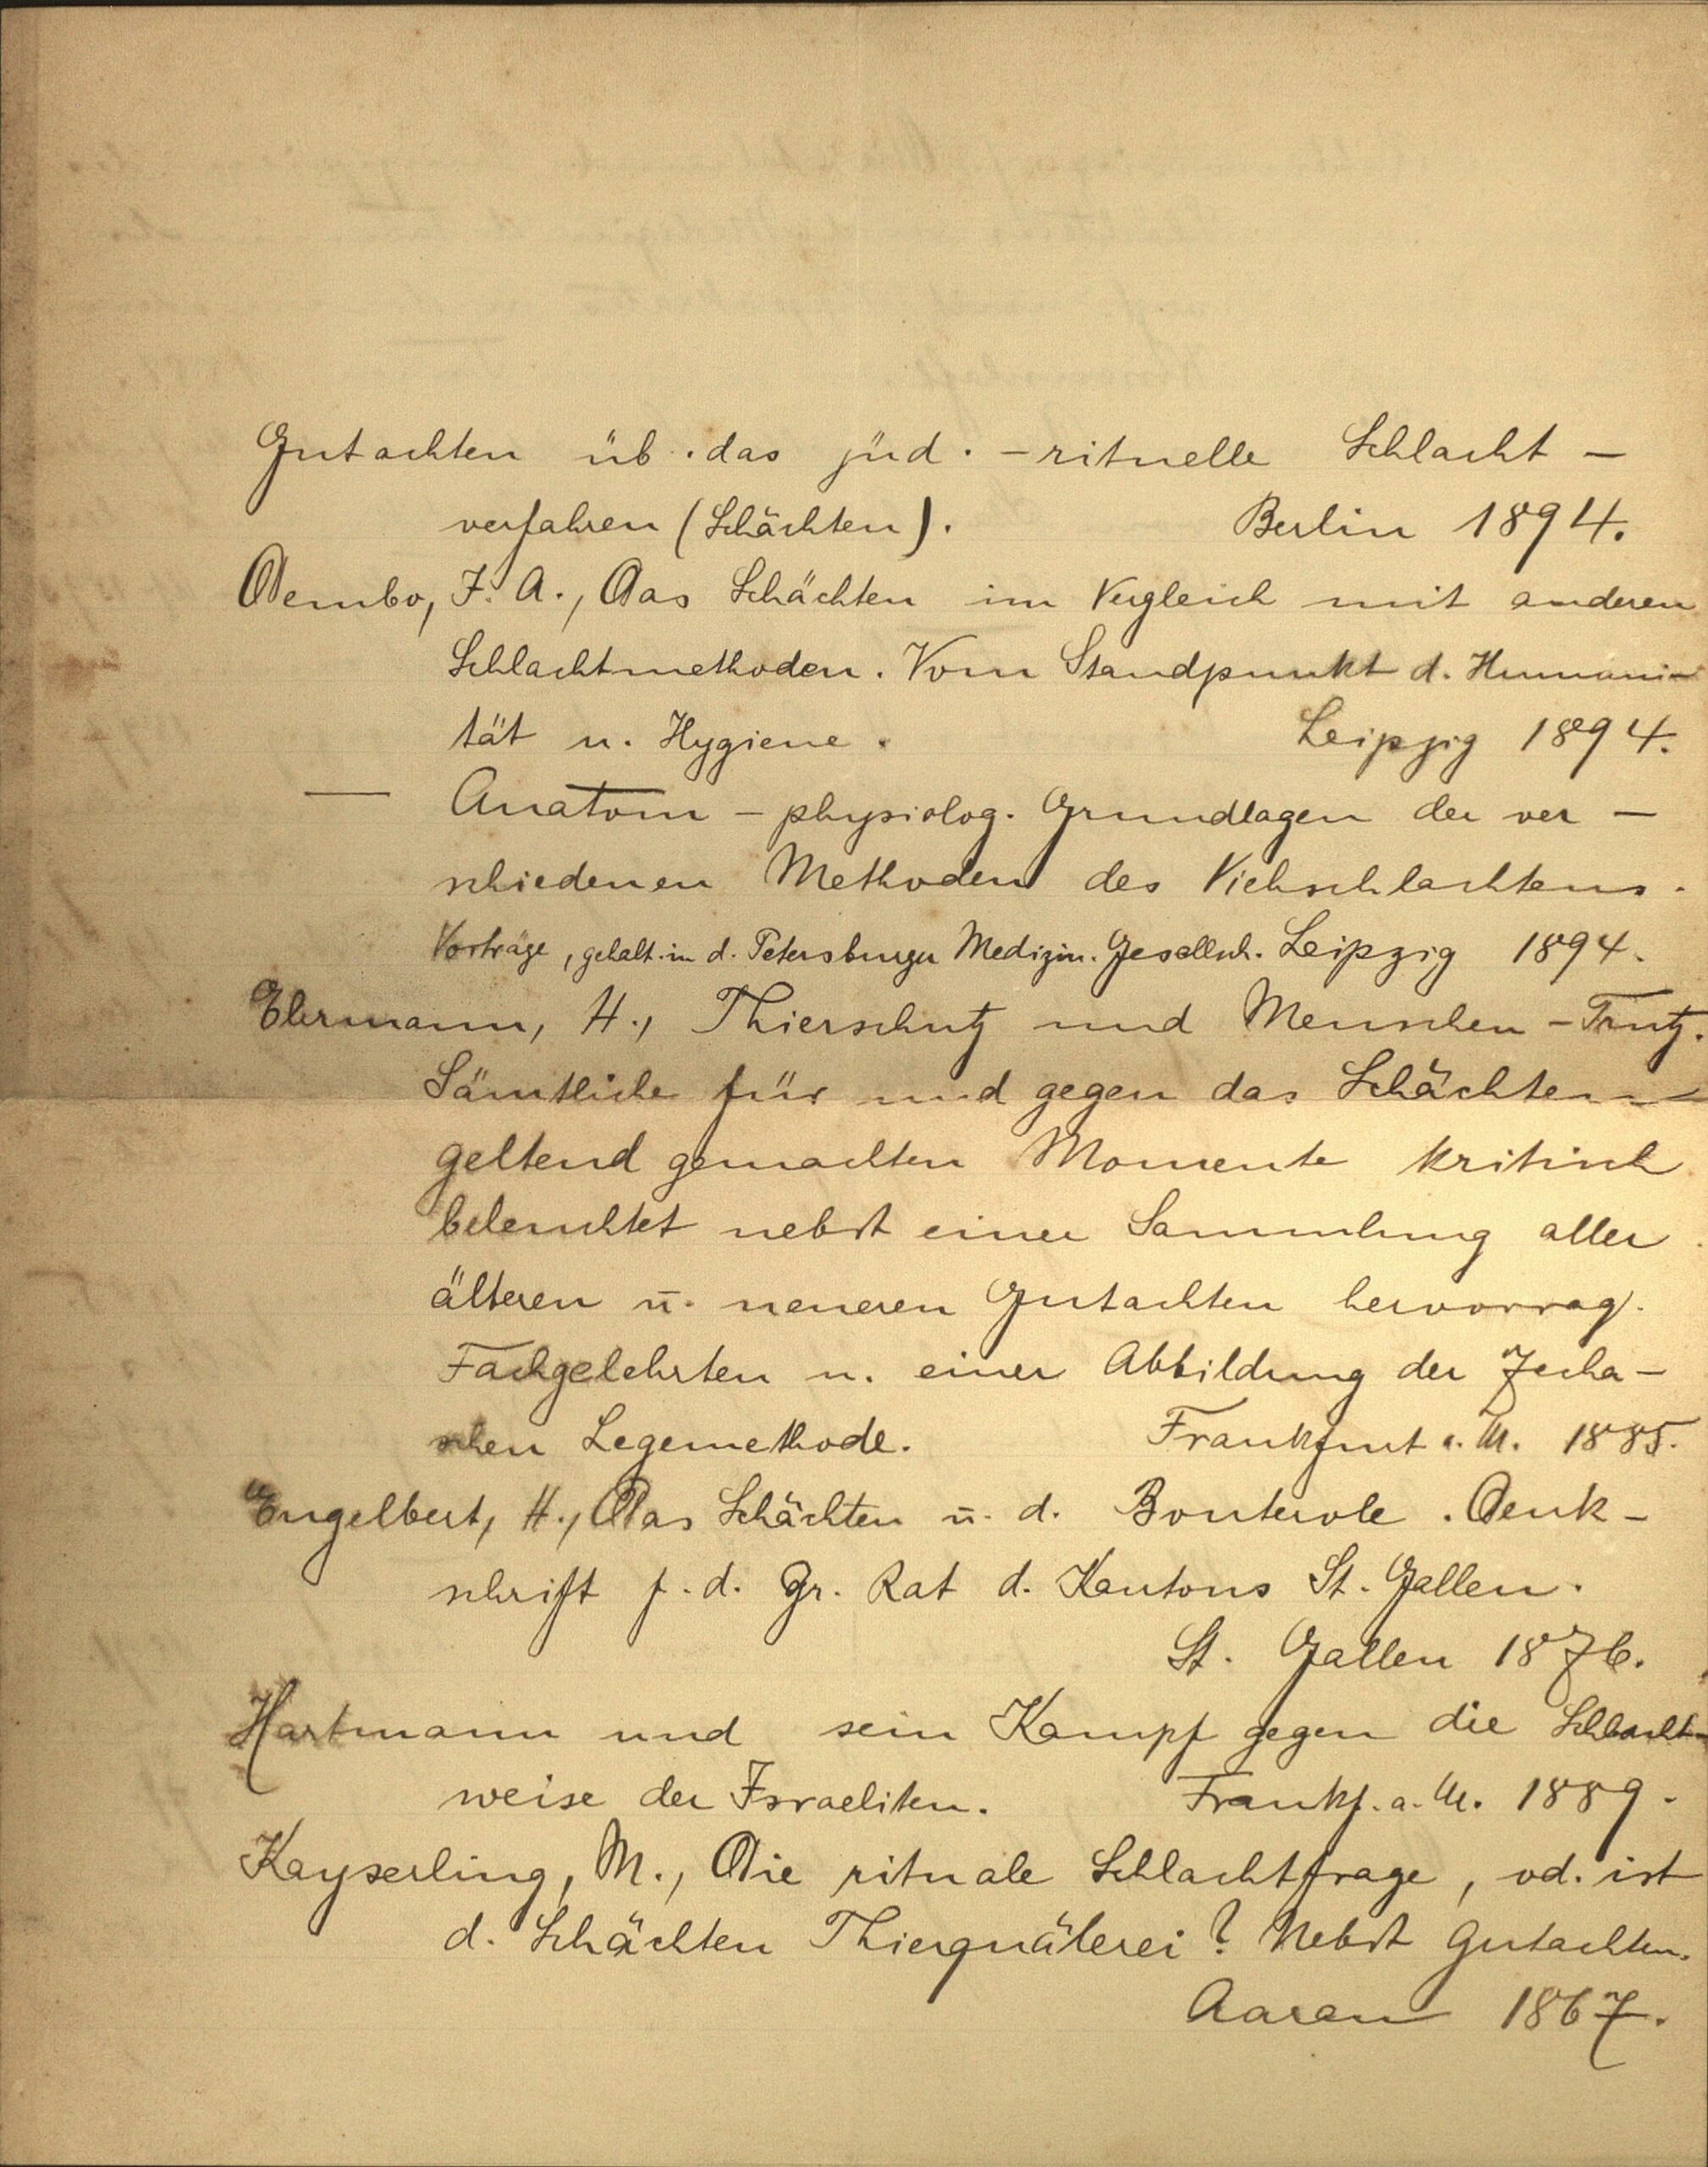 Gutachten üb. das jüd. - rituelle Schlacht -
verfahren (Schächten). Berlin 1894.
Dembo, I. A., Das Schächten im Vergleich mit anderen
Schlachtmethoden. Vom Standpunkt d. Humani-
tät u. Hygiene. Leipzig 1894.
— Anatom - physiolog. Grundlagen der ver -
schiedenen Methoden des Viehschlachtens.
Vorträge, gehalt. in d. Petersburger Medizin. Gesellsch. Leipzig 1894.
Ehrmann, H., Thierschutz und Menschen - Trutz.
Sämtliche für und gegen das Schächten
geltend gemachten Momente kritisch
beleuchtet nebst einer Sammlung aller
älteren u. neueren Gutachten hervorrag.
Fachgelehrten u. einer Abbildung der
schen Legemethode. Frankfurt a. M. 1885.
Engelbert, H., Das Schächten u. d. Bouterole. Denk -
schrift f. d. Gr. Rat d. Kantons St. Gallen.
St. Gallen 1876.
Hartmann und sein Kampf gegen die Schlacht-
weise der Israeliten. Frankf. a. M. 1889.
Kayserling, M., Die rituale Schlachtfrage, od. ist
d. Schächten Thierquälerei? Nebst Gutachten.
Aarau 1867.